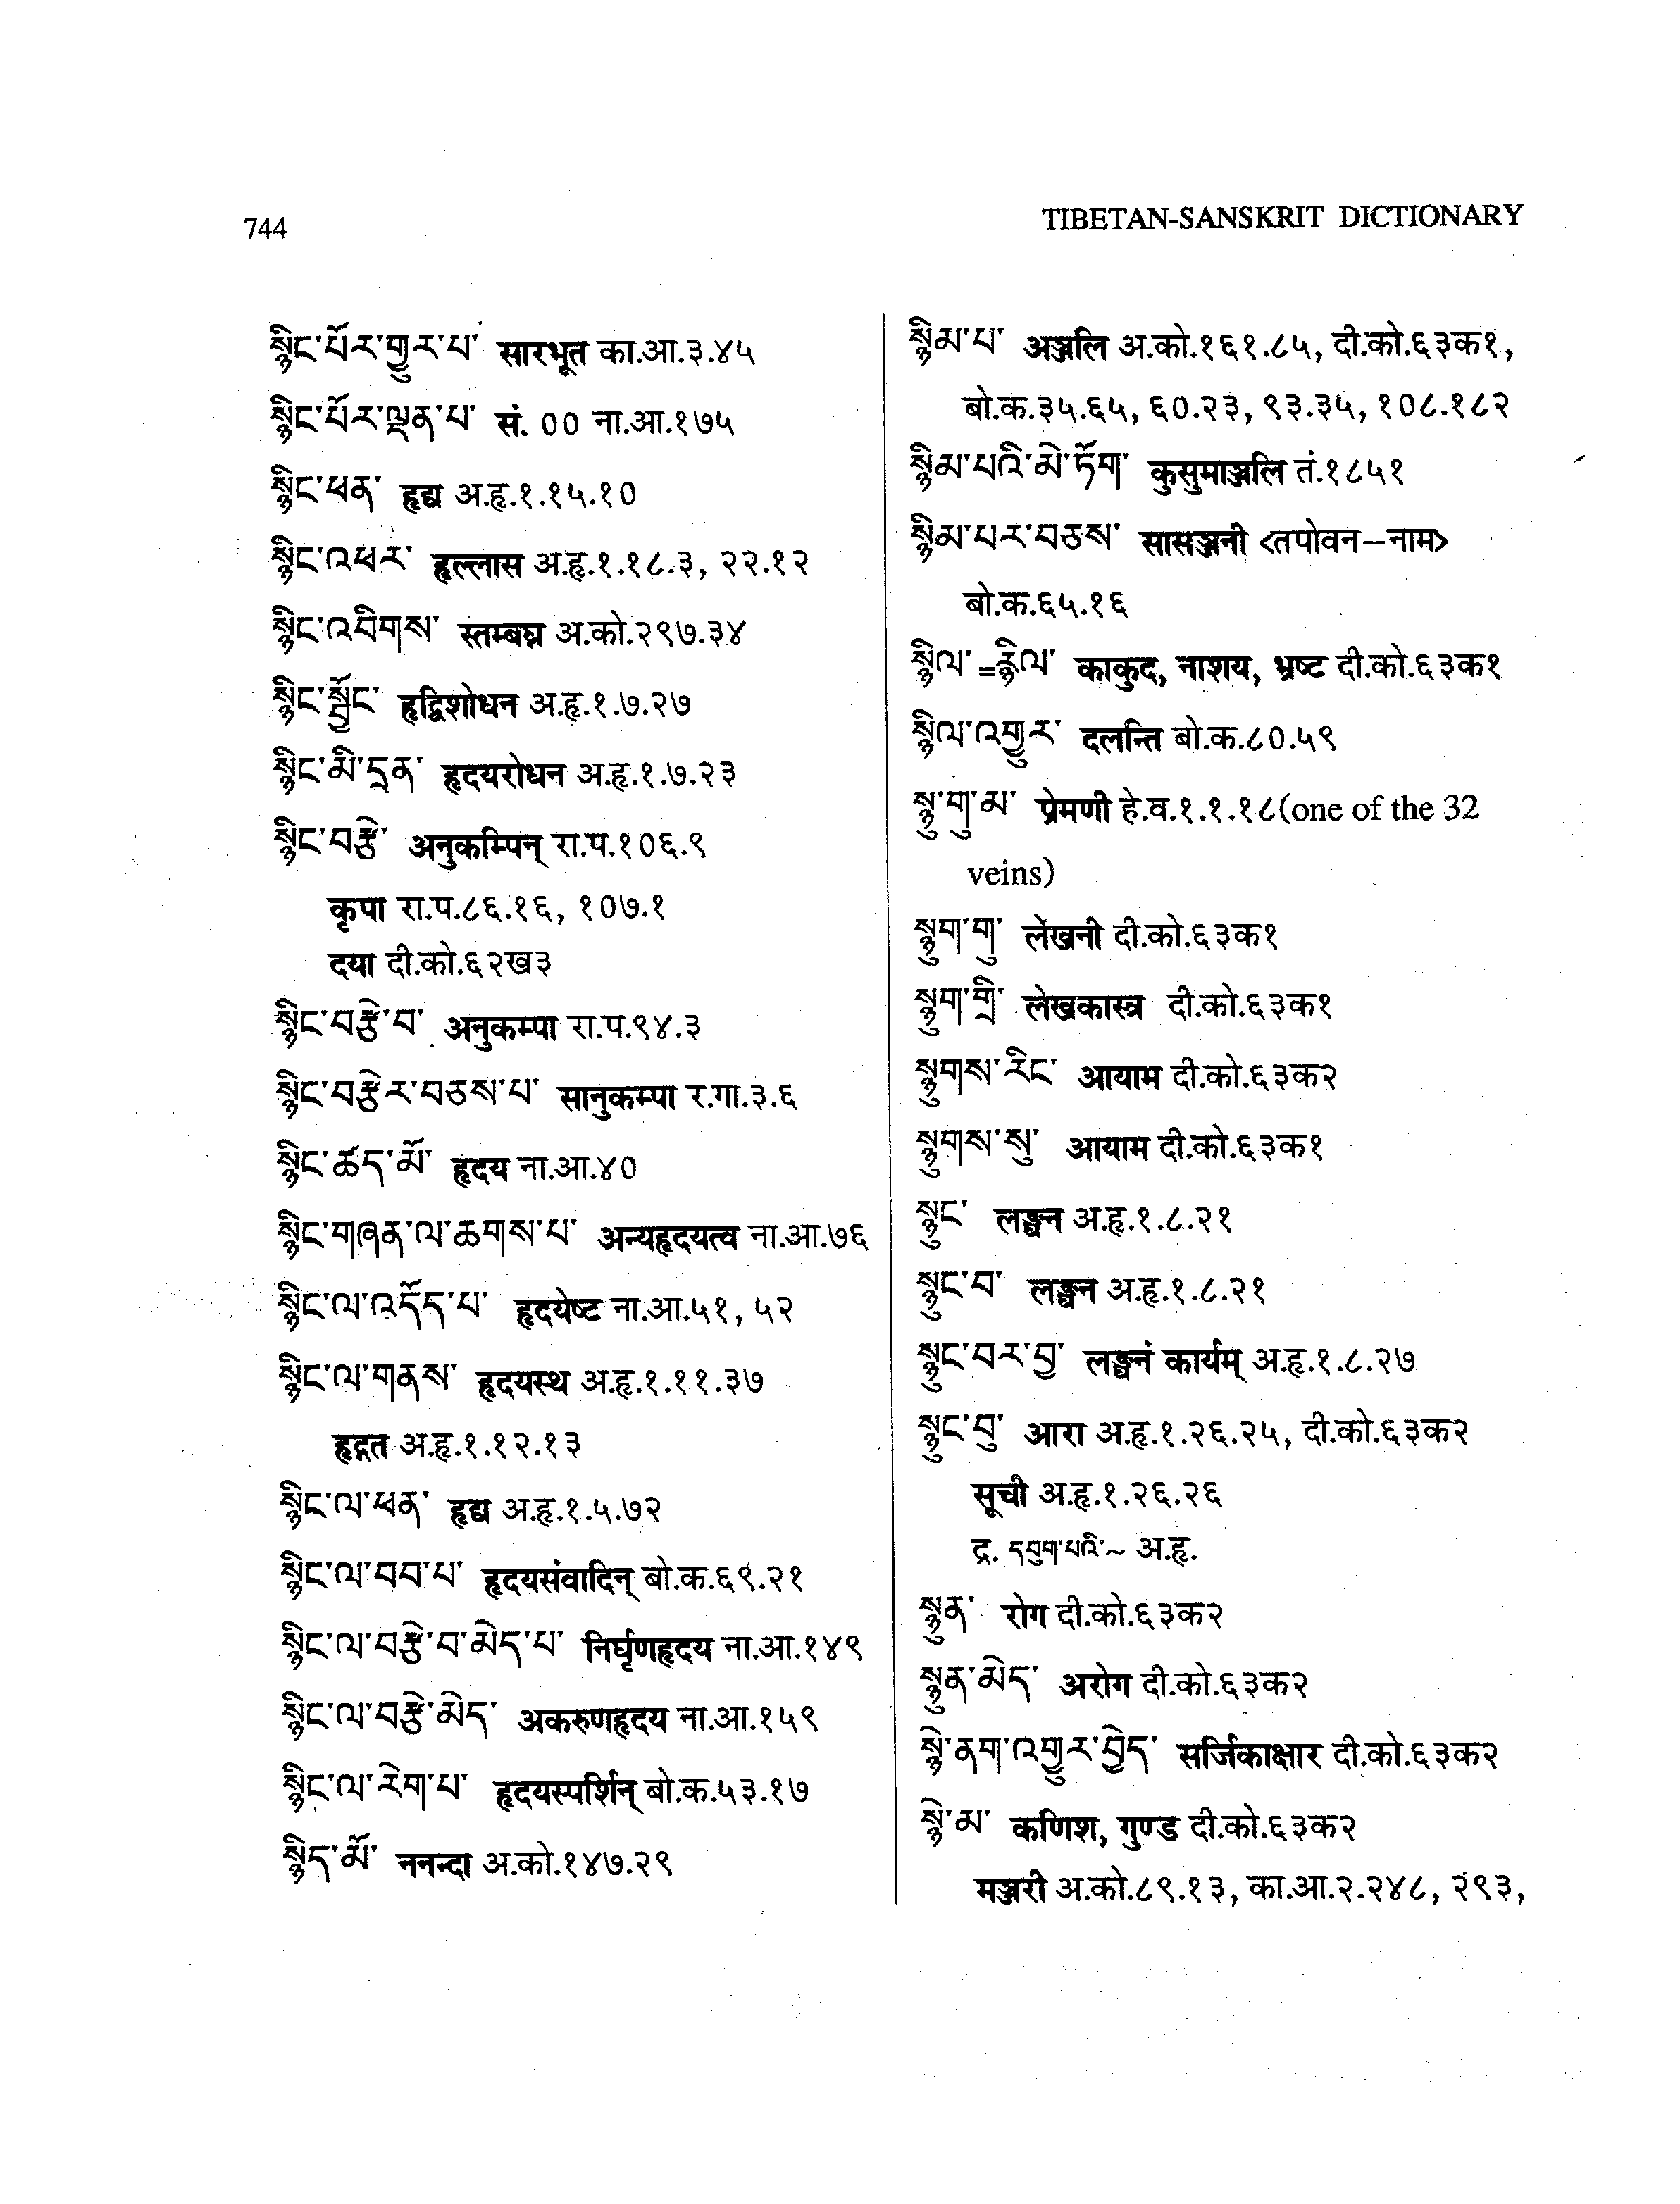 744
TIBETAN-SANSKRIT DICTIONARY
སྙིང་པོར་གྱུར་པ་ सारभूत का.आ.३.४५
སྙིང་པོར་ལྡན་པ་ सं. 00 ना.आ.१७५
སྙིང་ཕན་ हृद्य अ.हृ.१.१५.१०
སྙིང་འཕར་ हृल्लास अ.हृ.१.१८.३, २२.१२
སྙིང་འབིགས་ स्तम्बघ्न अ.को.२९७.३४
སྙིང་སྦྱོང་ हृद्विशोधन अ.हृ.१.७.२७
སྙིང་མི་དྲན་ हृदयरोधन अ.हृ.१.७.२३
སྙིང་བརྩེ་ अनुकम्पिन् रा.प.१०६.९
कृपा रा.प.८६.१६, १०७.१
दया दी.को.६२ख३
སྙིང་བརྩེ་བ་ अनुकम्पा रा.प.९४.३
སྙིང་བརྩེར་བཅས་པ་ सानुकम्पा र.गा.३.६
སྙིང་ཚད་མོ་ हृदय ना.आ.४०
སྙིང་གཞན་ལ་ཆགས་པ་ अन्यहृदयत्व ना.आ.७६
སྙིང་ལ་འདོད་པ་ हृदयेष्ट ना.आ.५१, ५२
སྙིང་ལ་གནས་ हृदयस्थ अ.हृ.१.११.३७
हृद्गत अ.हृ.१.१२.१३
སྙིང་ལ་ཕན་ हृद्य अ.हृ.१.५.७२
སྙིང་ལ་བབ་པ་ हृदयसंवादिन् बो.क.६९.२१
སྙིང་ལ་བརྩེ་བ་མེད་པ་ निर्घृणहृदय ना.आ.१४९
སྙིང་ལ་བརྩེ་མེད་ अकरुणहृदय ना.आ.१५९
སྙིང་ལ་རེག་པ་ हृदयस्पर्शिन् बो.क.५३.१७
སྙིད་མོ་ ननन्दा अ.को.१४७.२९
སྙིམ་པ་ अञ्जलि अ.को.१६१.८५, दी.को.६३क१,
बो.क.३५.६५, ६०.२३, ९३.३५, १०८.१८२
སྙིམ་པའི་མེ་ཏོག་ कुसुमाञ्जलि तं.१८५१
སྙིམ་པར་བཅས་ सासञ्जनी <तपोवन–नाम>
बो.क.६५.१६
སྙིལ་ =རྙིལ་ काकुद, नाशय, भ्रष्ट दी.को.६३क१
སྙིལ་འགྱུར་ दलन्ति बो.क.८०.५९
སྙུ་གུ་མ་ प्रेमणी हे.व.१.१.१८(one of the 32
veins)
སྙུག་གུ་ लेखनी दी.को.६३क१
སྙུག་གྲི་ लेखकास्त्र दी.को.६३क१
སྙུགས་རིང་ आयाम दी.को.६३क२
སྙུགས་སུ་ आयाम दी.को.६३क१
སྙུང་ लङ्घन अ.हृ.१.८.२१
སྙུང་བ་ लङ्घन अ.हृ.१.८.२१
སྙུང་བར་བྱ་ लङ्घनं कार्यम् अ.हृ.१.८.२७
སྙུང་བུ་ आरा अ.हृ.१.२६.२५, दी.को.६३क२
सूची अ.हृ.१.२६.२६
द्र. དབུག་པའི་~ अ.हृ.
སྙུན་ रोग दी.को.६३क२
སྙུན་མེད་ अरोग दी.को.६३क२
སྙེ་ནག་འགྱུར་བྱེད་ सर्जिकाक्षार दी.को.६३क२
སྙེ་མ་ कणिश, गुण्ड दी.को.६३क२
मञ्जरी अ.को.८९.१३, का.आ.२.२४८, २९३,